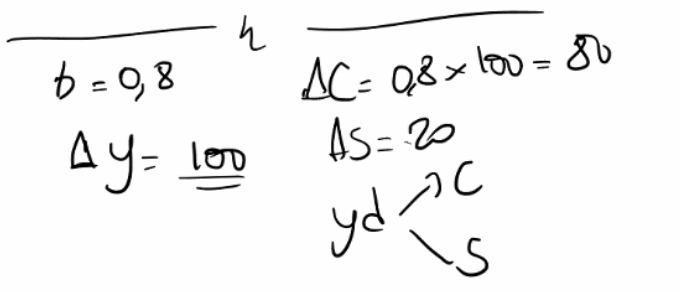 b = 0,8
ΔY = 100
ΔC = 0,8 × 100 = 80
ΔS = 20
yd
C
S